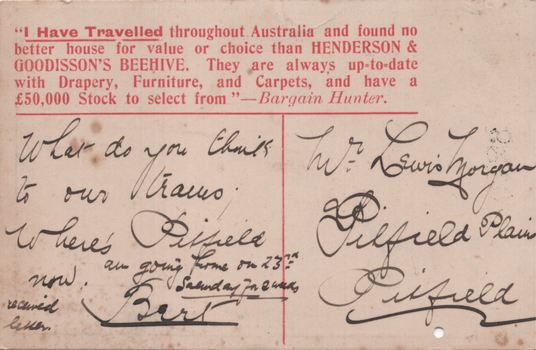 "I Have Travelled throughout Australia and found no
better house for value or choice than HENDERSON &
GOODISSON'S BEEHIVE. They are always up-to-date
with Drapery, Furniture, and Carpets, and have a
£50,000 Stock to select from"—Bargain Hunter.
What do you think
to our trams,
Where's Pitfield
now. am going home on 23rd
Saturday for 2 weeks
received
letter.
Bert
Mr. Lewis Morgan
Pitfield Plains
Pitfield